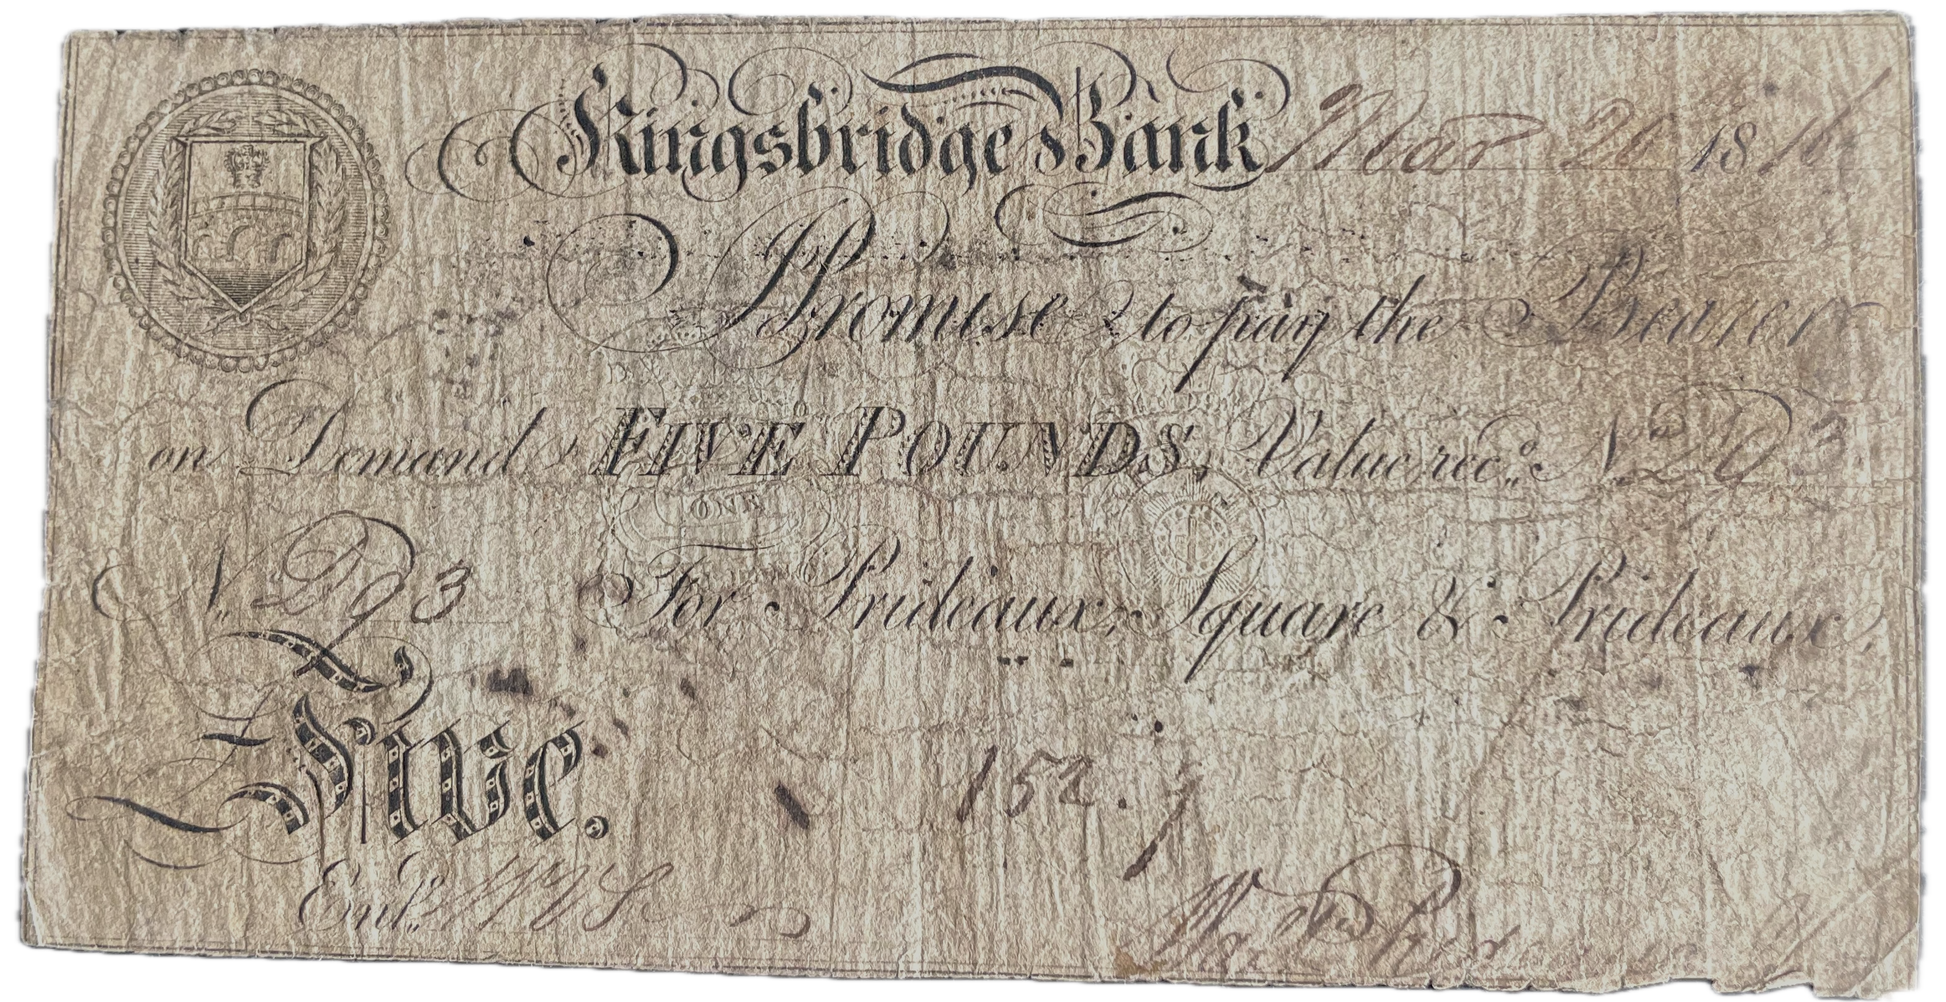 Kingsbridge Bank Mar 26 18
I Promise to pay the Bearer
on Demand FIVE POUNDS, Value rec.d
For Prideaux, Square & Prideaux,
ONE
Five.
152.
Ent.d